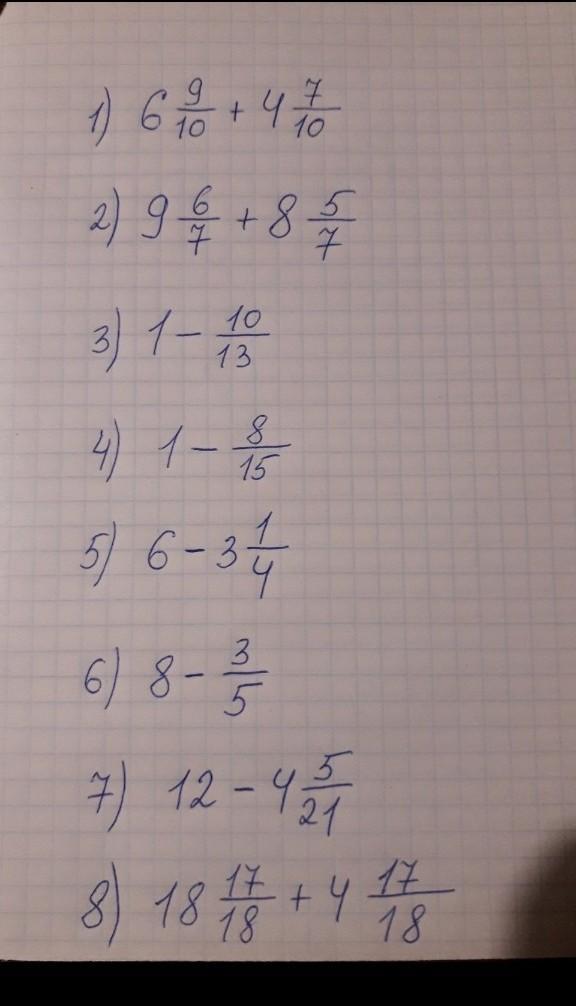 1) 6 9/10 + 4 7/10
2) 9 6/7 + 8 5/7
3) 1 - 10/13
4) 1 - 8/15
5) 6 - 3 1/4
6) 8 - 3/5
7) 12 - 4 5/21
8) 18 17/18 + 4 17/18